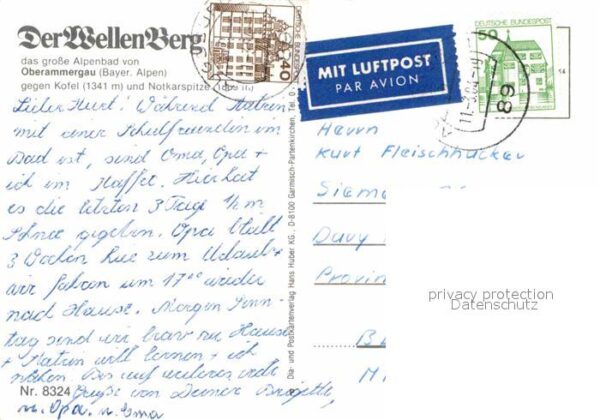 Der WellenBerg
das große Alpenbad von
Oberammergau (Bayer. Alpen)
gegen Kofel (1341 m) und Notkarspitze
Lieber Kurt! Während Katrin
mit einer Schulfreundin im
Bad ist, sind Oma, Opa +
ich im Kaffee. Hier hat
es die letzten 3 Tage ½ m
Schnee gegeben. Opa bleibt
3 Wochen hier zum Urlaub +
wir fahren um 17⁰⁰ wieder
nach Hause. Morgen Sonn-
tag sind wir brav zu Hause
+ Katrin will lernen + ich
nähen. Bis auf weiteres viele
Grüße von Deiner Brigitte
u. Opa u. Oma
Nr. 8324
Dia- und Postkartenverlag Hans Huber KG., D-8100 Garmisch-Partenkirchen, Tel. 0
40
MIT LUFTPOST
PAR AVION
DEUTSCHE BUNDESPOST
50
89
14
Herrn
Kurt Fleischhacker
Sieme
Davy
Provin
B
M
privacy protection
Datenschutz